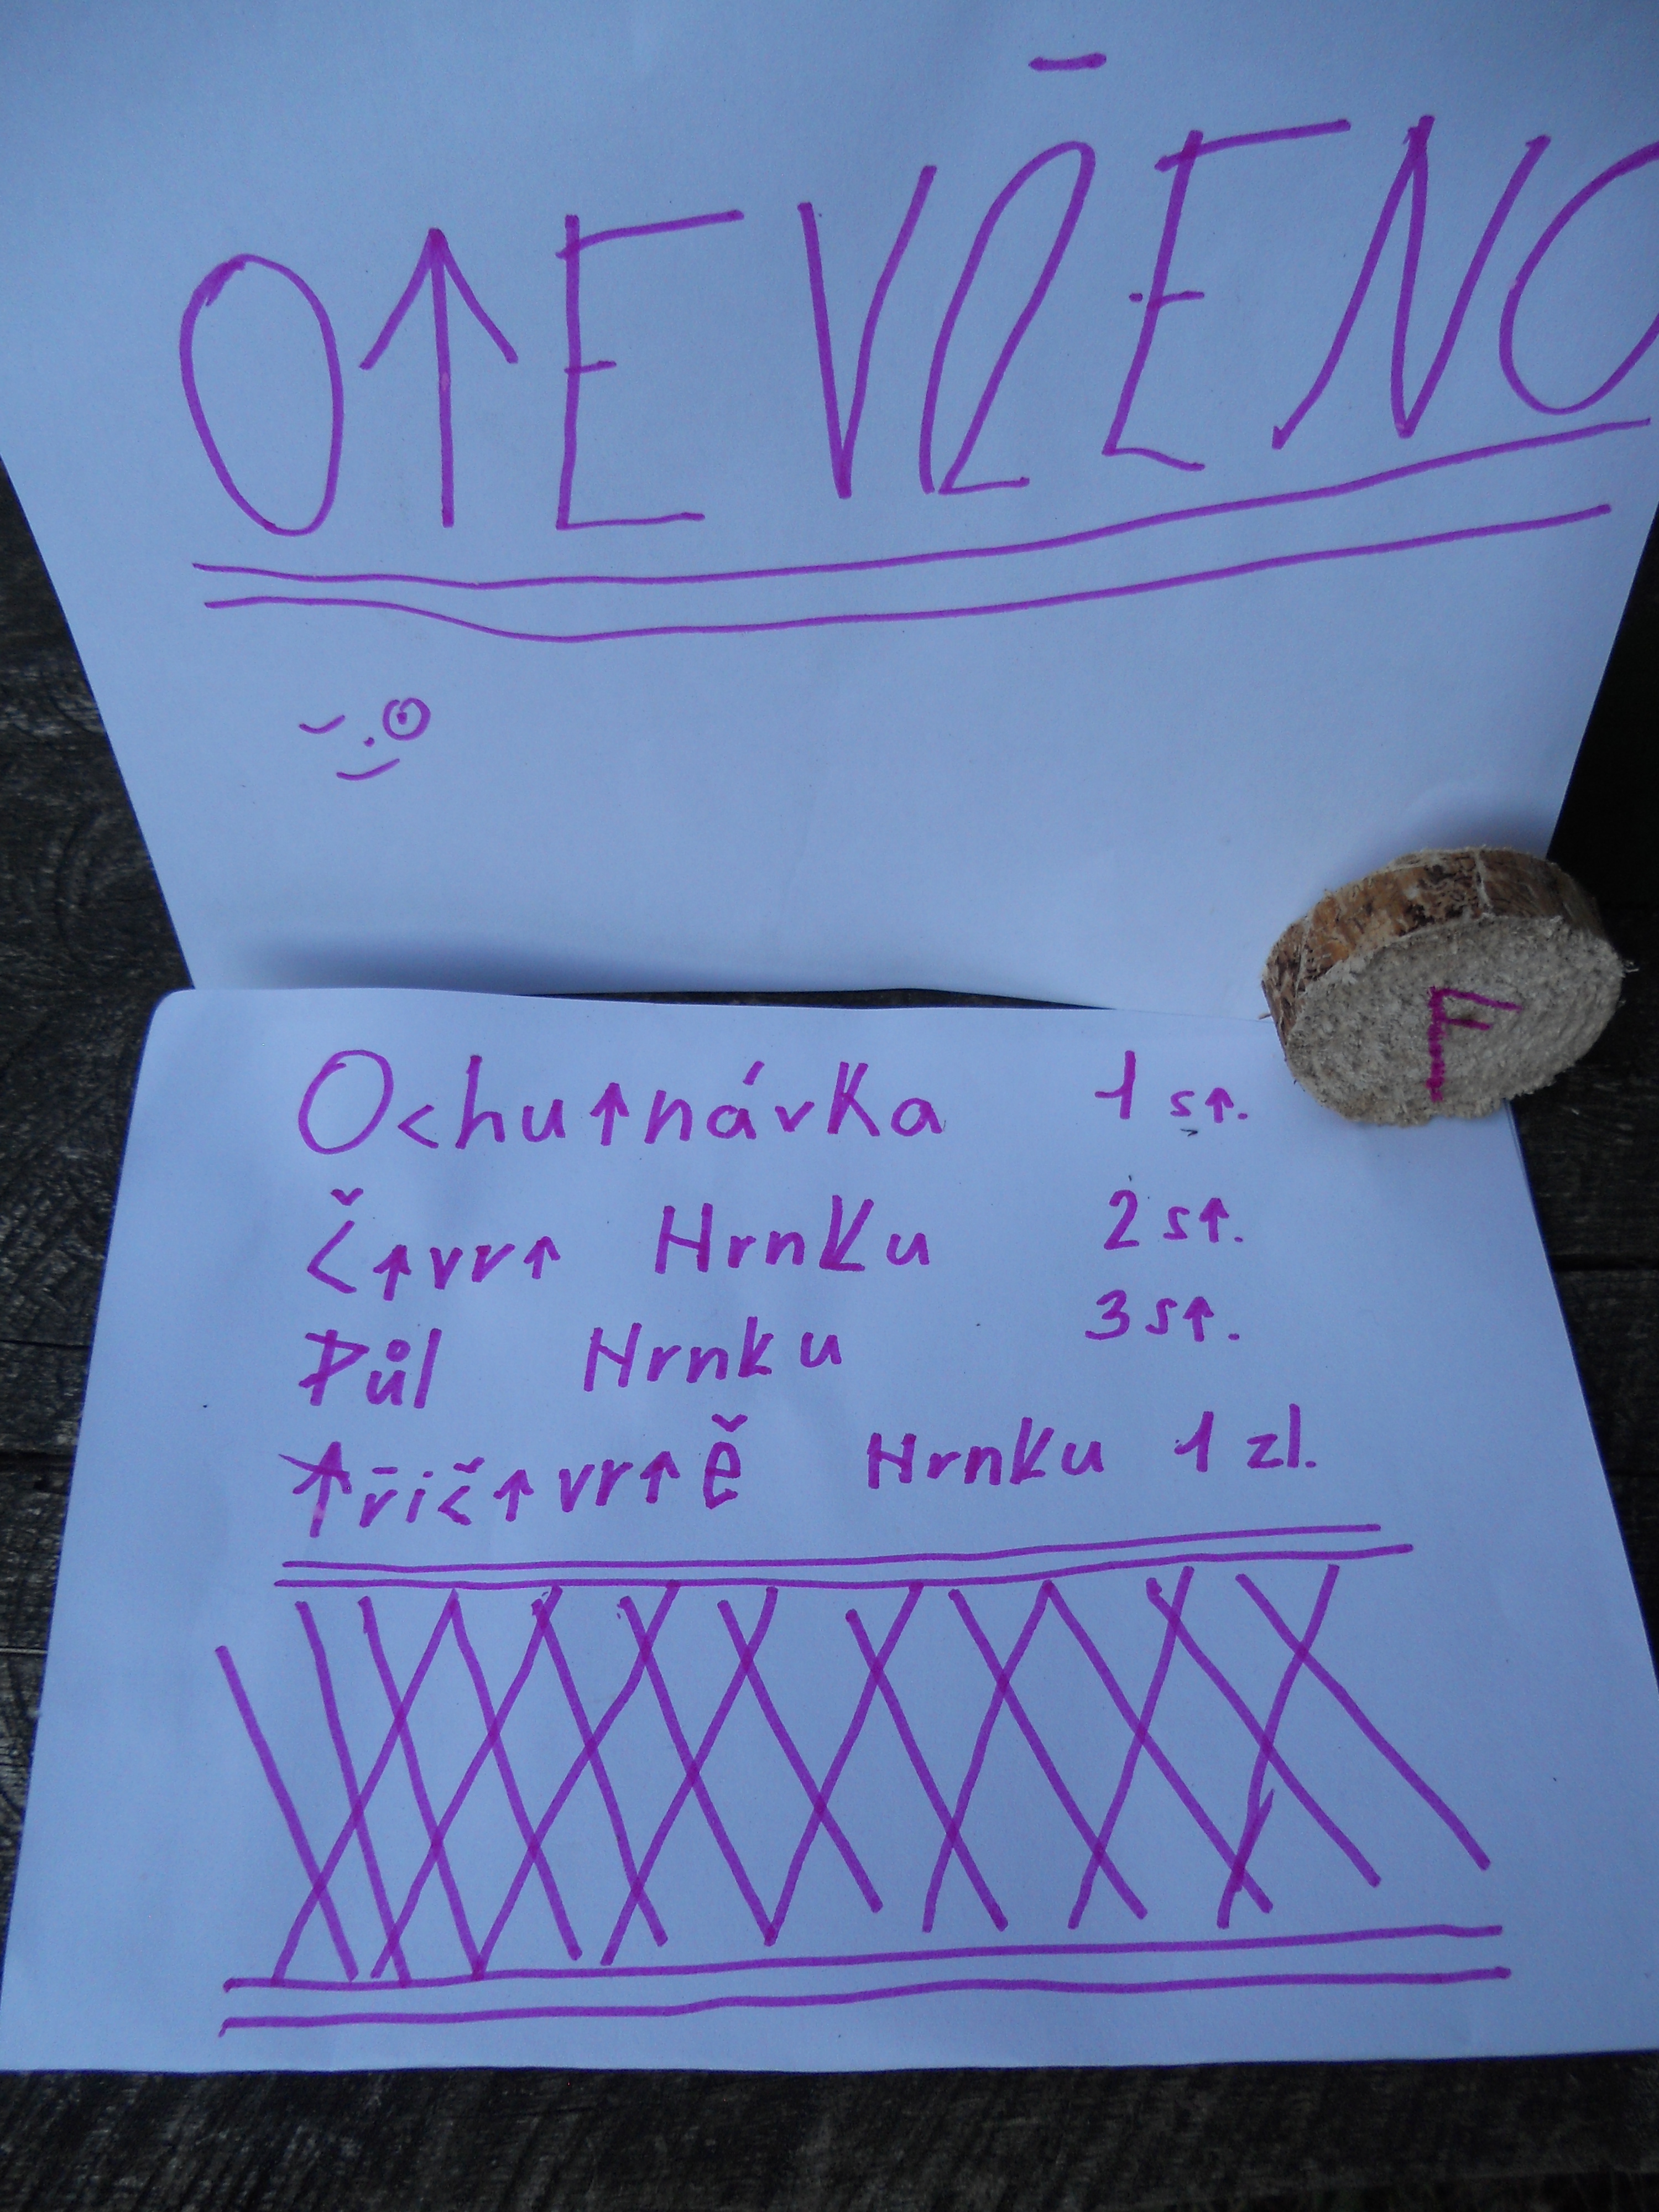 OTEVŘENO
F
Ochutnávka 1 st.
Čtvrt Hrnku 2 st.
Půl Hrnku 3 st.
Třičtvrtě Hrnku 1 zl.